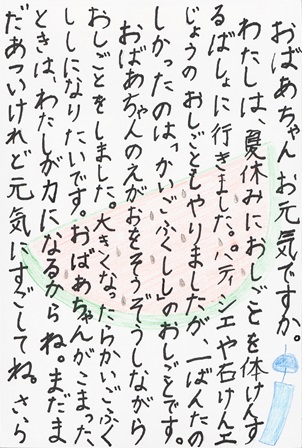 おばあちゃん お元気ですか。
わたしは、夏休みにおしごとを体けんす
るばしょに行きました。パティシエや石けんこう
じょうの おしごともやりましたが、一ばんたの
しかったのは「かいごふくしし」のおしごとです。
おばあちゃんのえがおをそうぞうしながら
おしごとをしました。大きくなったらかいごふく
ししになりたいです。おばあちゃんがこまった
ときは、わたしが力になるからね。まだま
だあついけれど元気にすごしてね。さくら